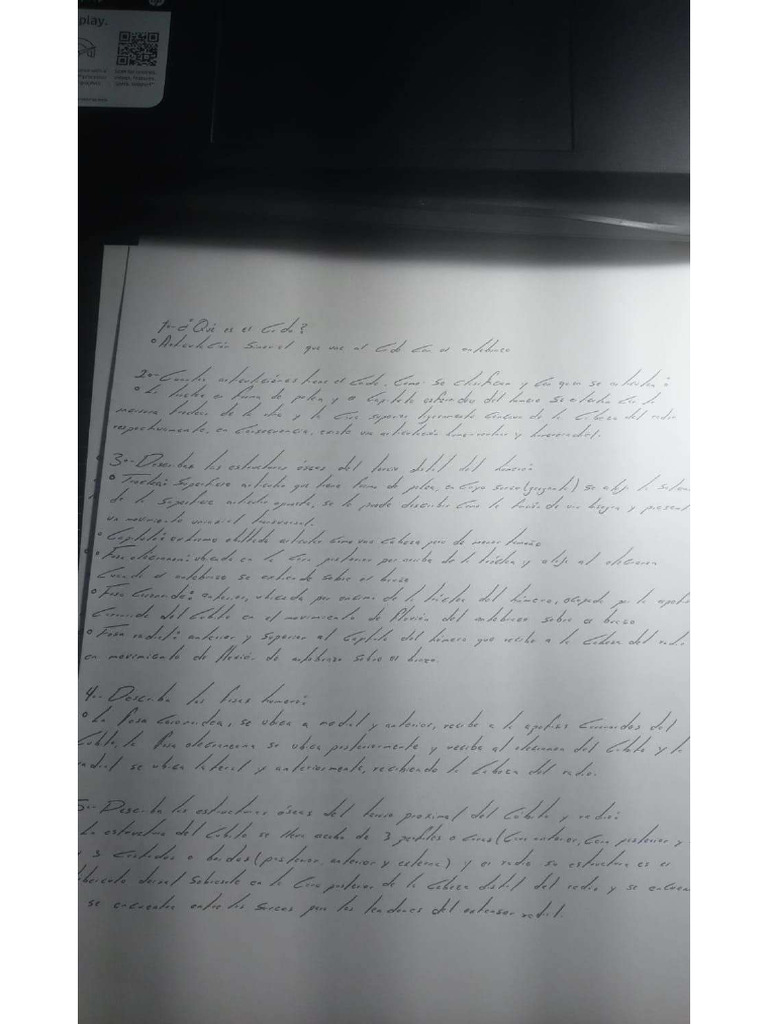 play.
1.- ¿Qué es el Codo?
° Articulación Sinovial que une al Codo con el antebrazo
2.- Cuantas articulaciones tiene el Codo, Como se clasifican y Con quien se articulan:
° La troclea en forma de polea y el Capitulo esferoidea del humero se articulan con la
troclear de la ulna y la cara superior ligeramente concava de la Cabeza del radio
respectivamente, en Consecuencia, existe una articulación humeroulnar y humeroradial.
3.- Describa las estructuras óseas del tercio distal del humero:
° Troclea: Superficie articular que tiene forma de polea, en cuyo surco (garganta) se aloja la
de la superficie articular opuesta, se la puede describir como la función de una bisagra y present
un movimiento uniaxial transversal.
° Capitulo: extremo articular como una cabeza pero de menor tamaño
° Fosa olecraneana: ubicada en la Cara posterior por arriba de la tróclea y aloja al olecranon
Cuando el antebrazo se extiende sobre el brazo
° Fosa Coronoidea: anterior, ubicada por encima de la tróclea del húmero, ocupada por la apofisis
Coronoide del Cubito en el movimiento de flexión del antebrazo sobre el brazo
° Fosa radial: anterior y superior al Capitulo del humero que recibe a la Cabeza del radio
en movimiento de flexión de antebrazo sobre el brazo.
4.- Describa las fosas humeral
° La fosa Coronoidea, se ubica a medial y anterior, recibe a la apofisis Coronoides del
Cubito, la fosa olecraneana se ubica posteriormente y recibe al olecranon del Cubito y la
radial se ubica lateral y anteriormente, recibiendo la Cabeza del radio.
5.- Describa las estructuras óseas del tercio proximal del Cúbito y radio:
La estructura del Cubito se lleva acabo de 3 perfiles o Caras (Cara anterior, Cara posterior y
y 3 Cristales o bordes (posterior, anterior y externo) y el radio su estructura es el
dorsal Saliente en la Cara posterior de la Cabeza distal del radio y se
se encuentra entre los surcos para los tendones del extensor radial.